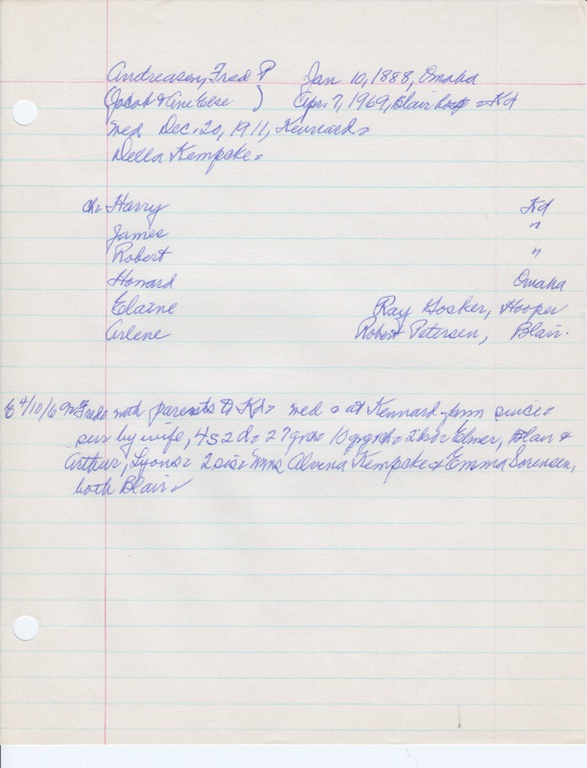 Andreasen, Fred P Jan 10, 1888, Omaha
(Jacob & Ane Else ) Apr. 7, 1969, Blair hosp Kd
Wed Dec. 20, 1911, Kennard
Della Kempcke
Ch: Harry Kd
James "
Robert "
Howard Omaha
Elaine Ray Hosker, Hooper
Arlene Robert Petersen, Blair.
E 4/10/69 Fred with parents to Kd wed at Kennard farm since
surv by wife, 4 s 2 d 27 grch 10 grgrch 2 bro Elmer, Blair &
Arthur, Lyons 2 sis Mrs Alvena Kempcke & Emma Sorensen,
both Blair